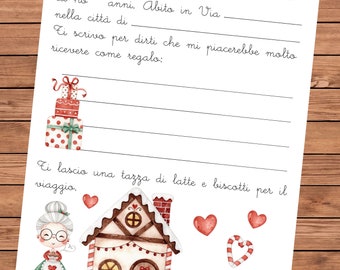 Io ho    anni. Abito in Via
nella città di
Ti scrivo per dirti che mi piacerebbe molto
ricevere come regalo:
Ti lascio una tazza di latte e biscotti per il
viaggio.